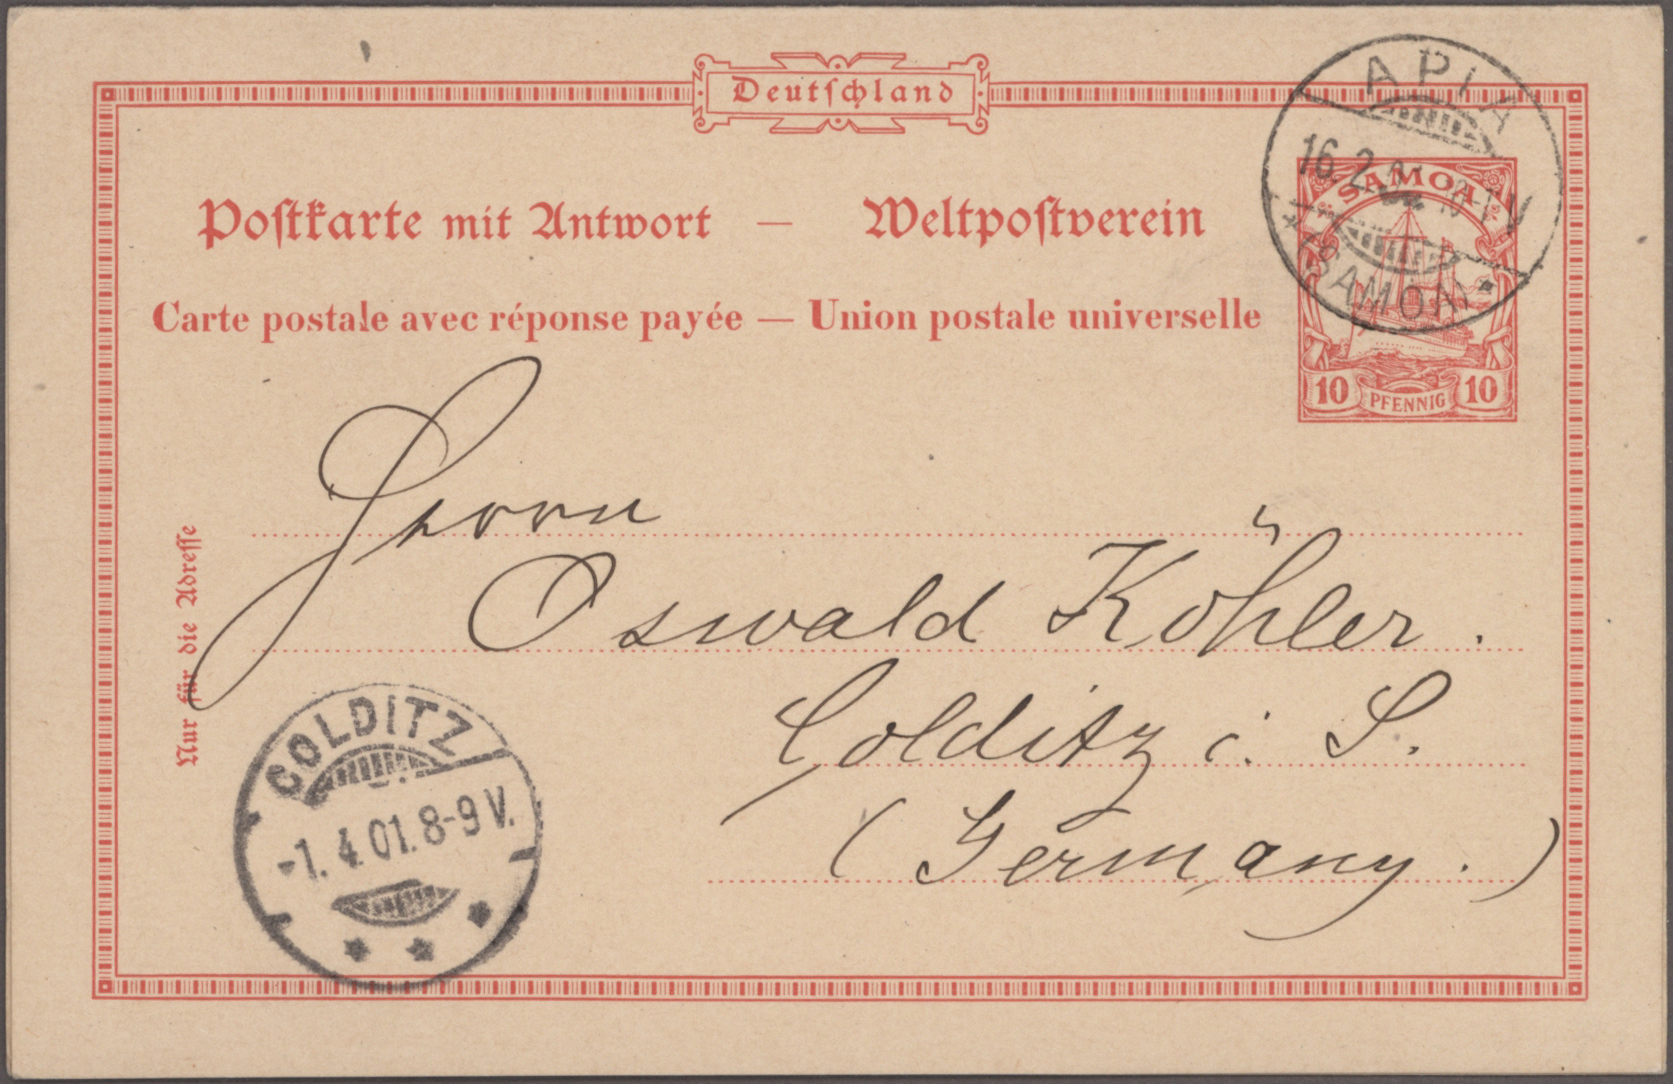 Deutschland
Postkarte mit Antwort — Weltpostverein
Carte postale avec réponse payée — Union postale universelle
APIA
16.2.01
SAMOA
SAMOA
10 PFENNIG 10
Nur für die Adresse
Herrn
Oswald Köhler.
Colditz i. S.
(Germany.)
COLDITZ
-1.4.01.8-9V.